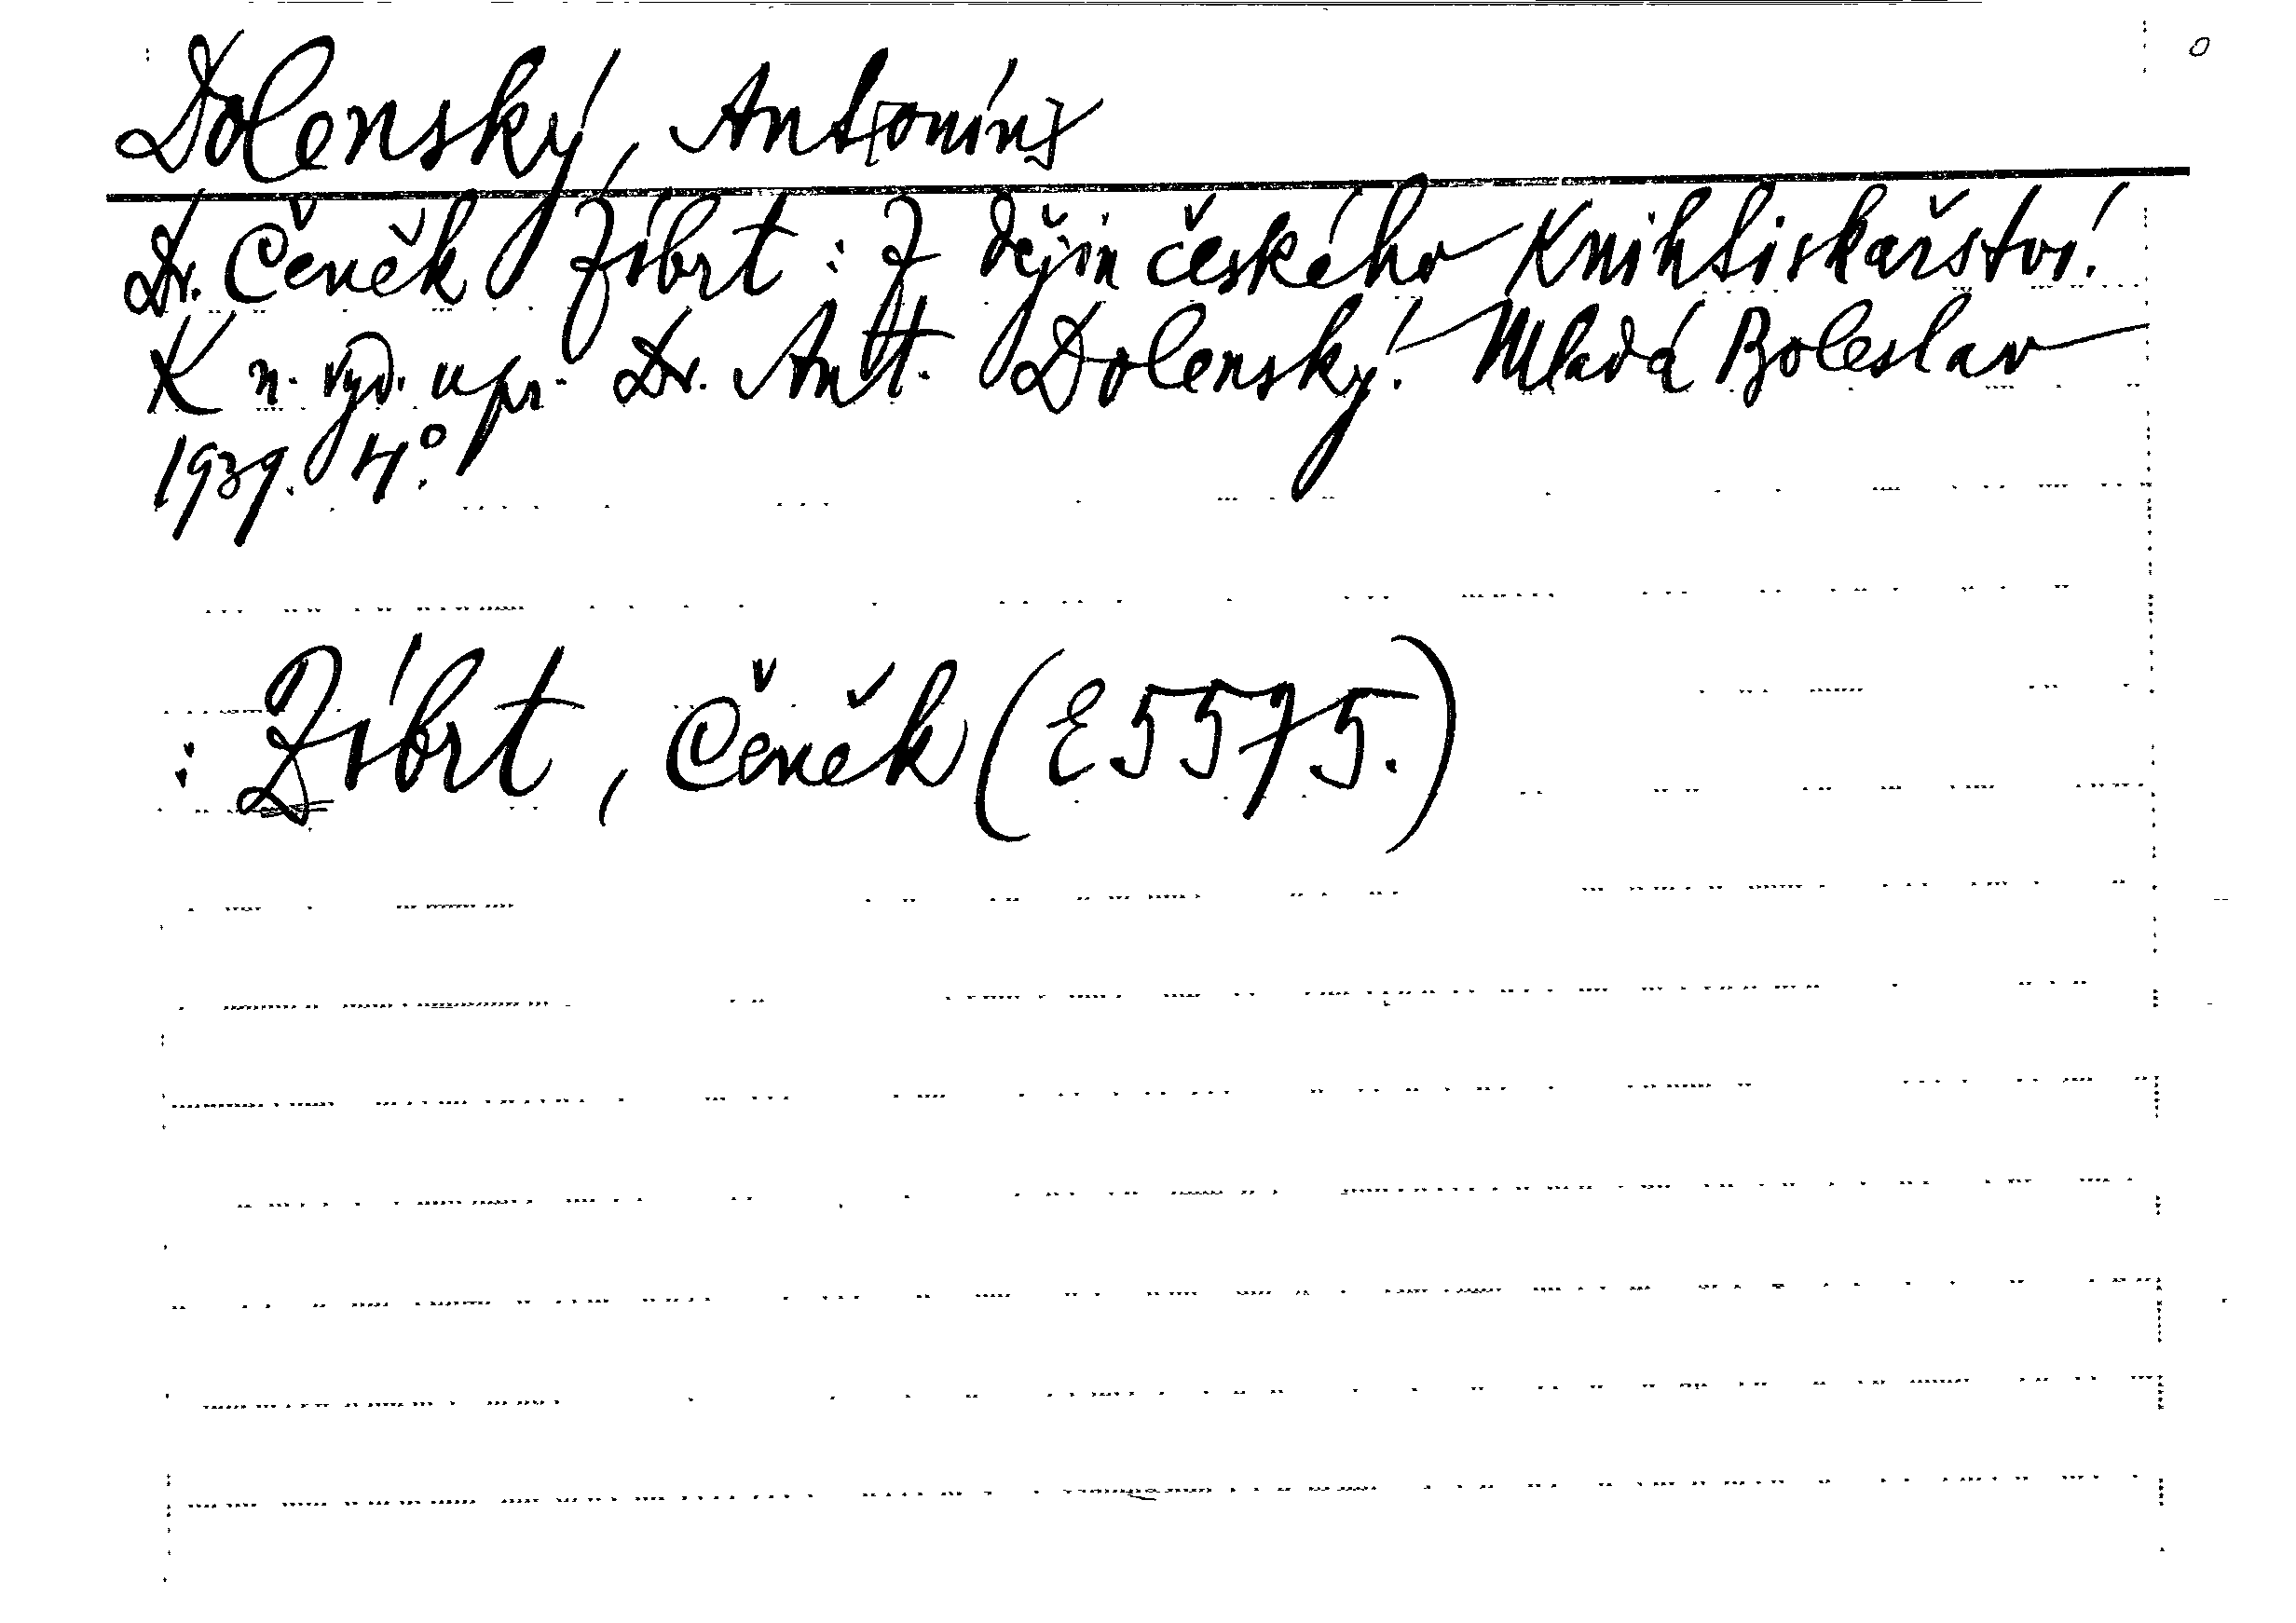 Dolenský, Ant[onín]
Dr. Čeněk Zíbrt: Z dějin českého knihtiskařství.
K n. vyd. upr. Dr. Ant. Dolenský. Mladá Boleslav
1939. 4°.
: Zíbrt, Čeněk (E 5575.)